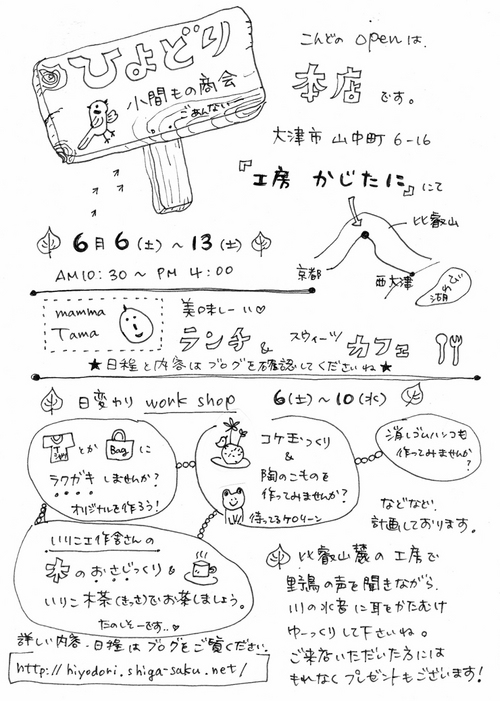 ひよどり
小間もの商会
ごあんない
こんどの openは、
本店 です。
大津市 山中町 6-16
『工房 かじたに』にて
比叡山
京都
西大津
びわ湖
6月6(土)〜13(土)
AM10:30〜PM 4:00
mamma
Tama
美味しーい♡
ランチ & スウィーツ カフェ
★日程と内容はブログを確認してくださいね★
日変わり work shop 6(土)〜10(水)
とか Bag に
ラクガキ しませんか?
オリジナルを作ろう!
コケ玉つくり
&
陶のこものを
作ってみませんか?
待ってるケロリーン
消しゴムハンコも
作ってみませんか?
などなど、
計画しております。
いりこ工作舎さんの
木のおさじつくり &
いりこ木茶(きっさ)でお茶しましょう。
たのしそーです..♡
比叡山麓の工房で
野鳥の声を聞きながら、
川の水音に耳をかたむけ
ゆーっくりして下さいね。
ご来店いただいた方には
もれなくプレゼントもございます!
詳しい内容・日程はブログをご覧ください。
http://hiyodori.shiga-saku.net/